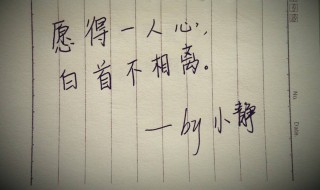 愿得一人心，
白首不相离。
—by 小静
No
Date